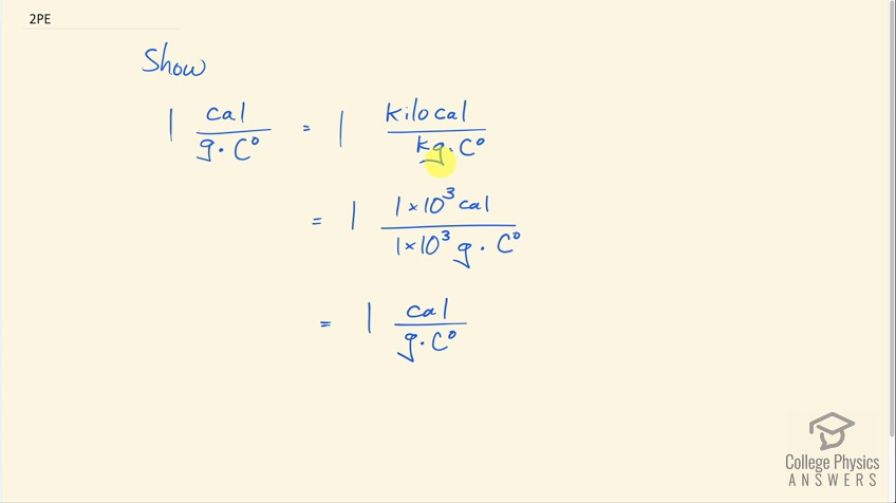 2PE
Show
1 cal / g · C° = 1 kilocal / kg · C°
= 1 1 × 10³ cal / 1 × 10³ g · C°
= 1 cal / g · C°
College Physics
ANSWERS